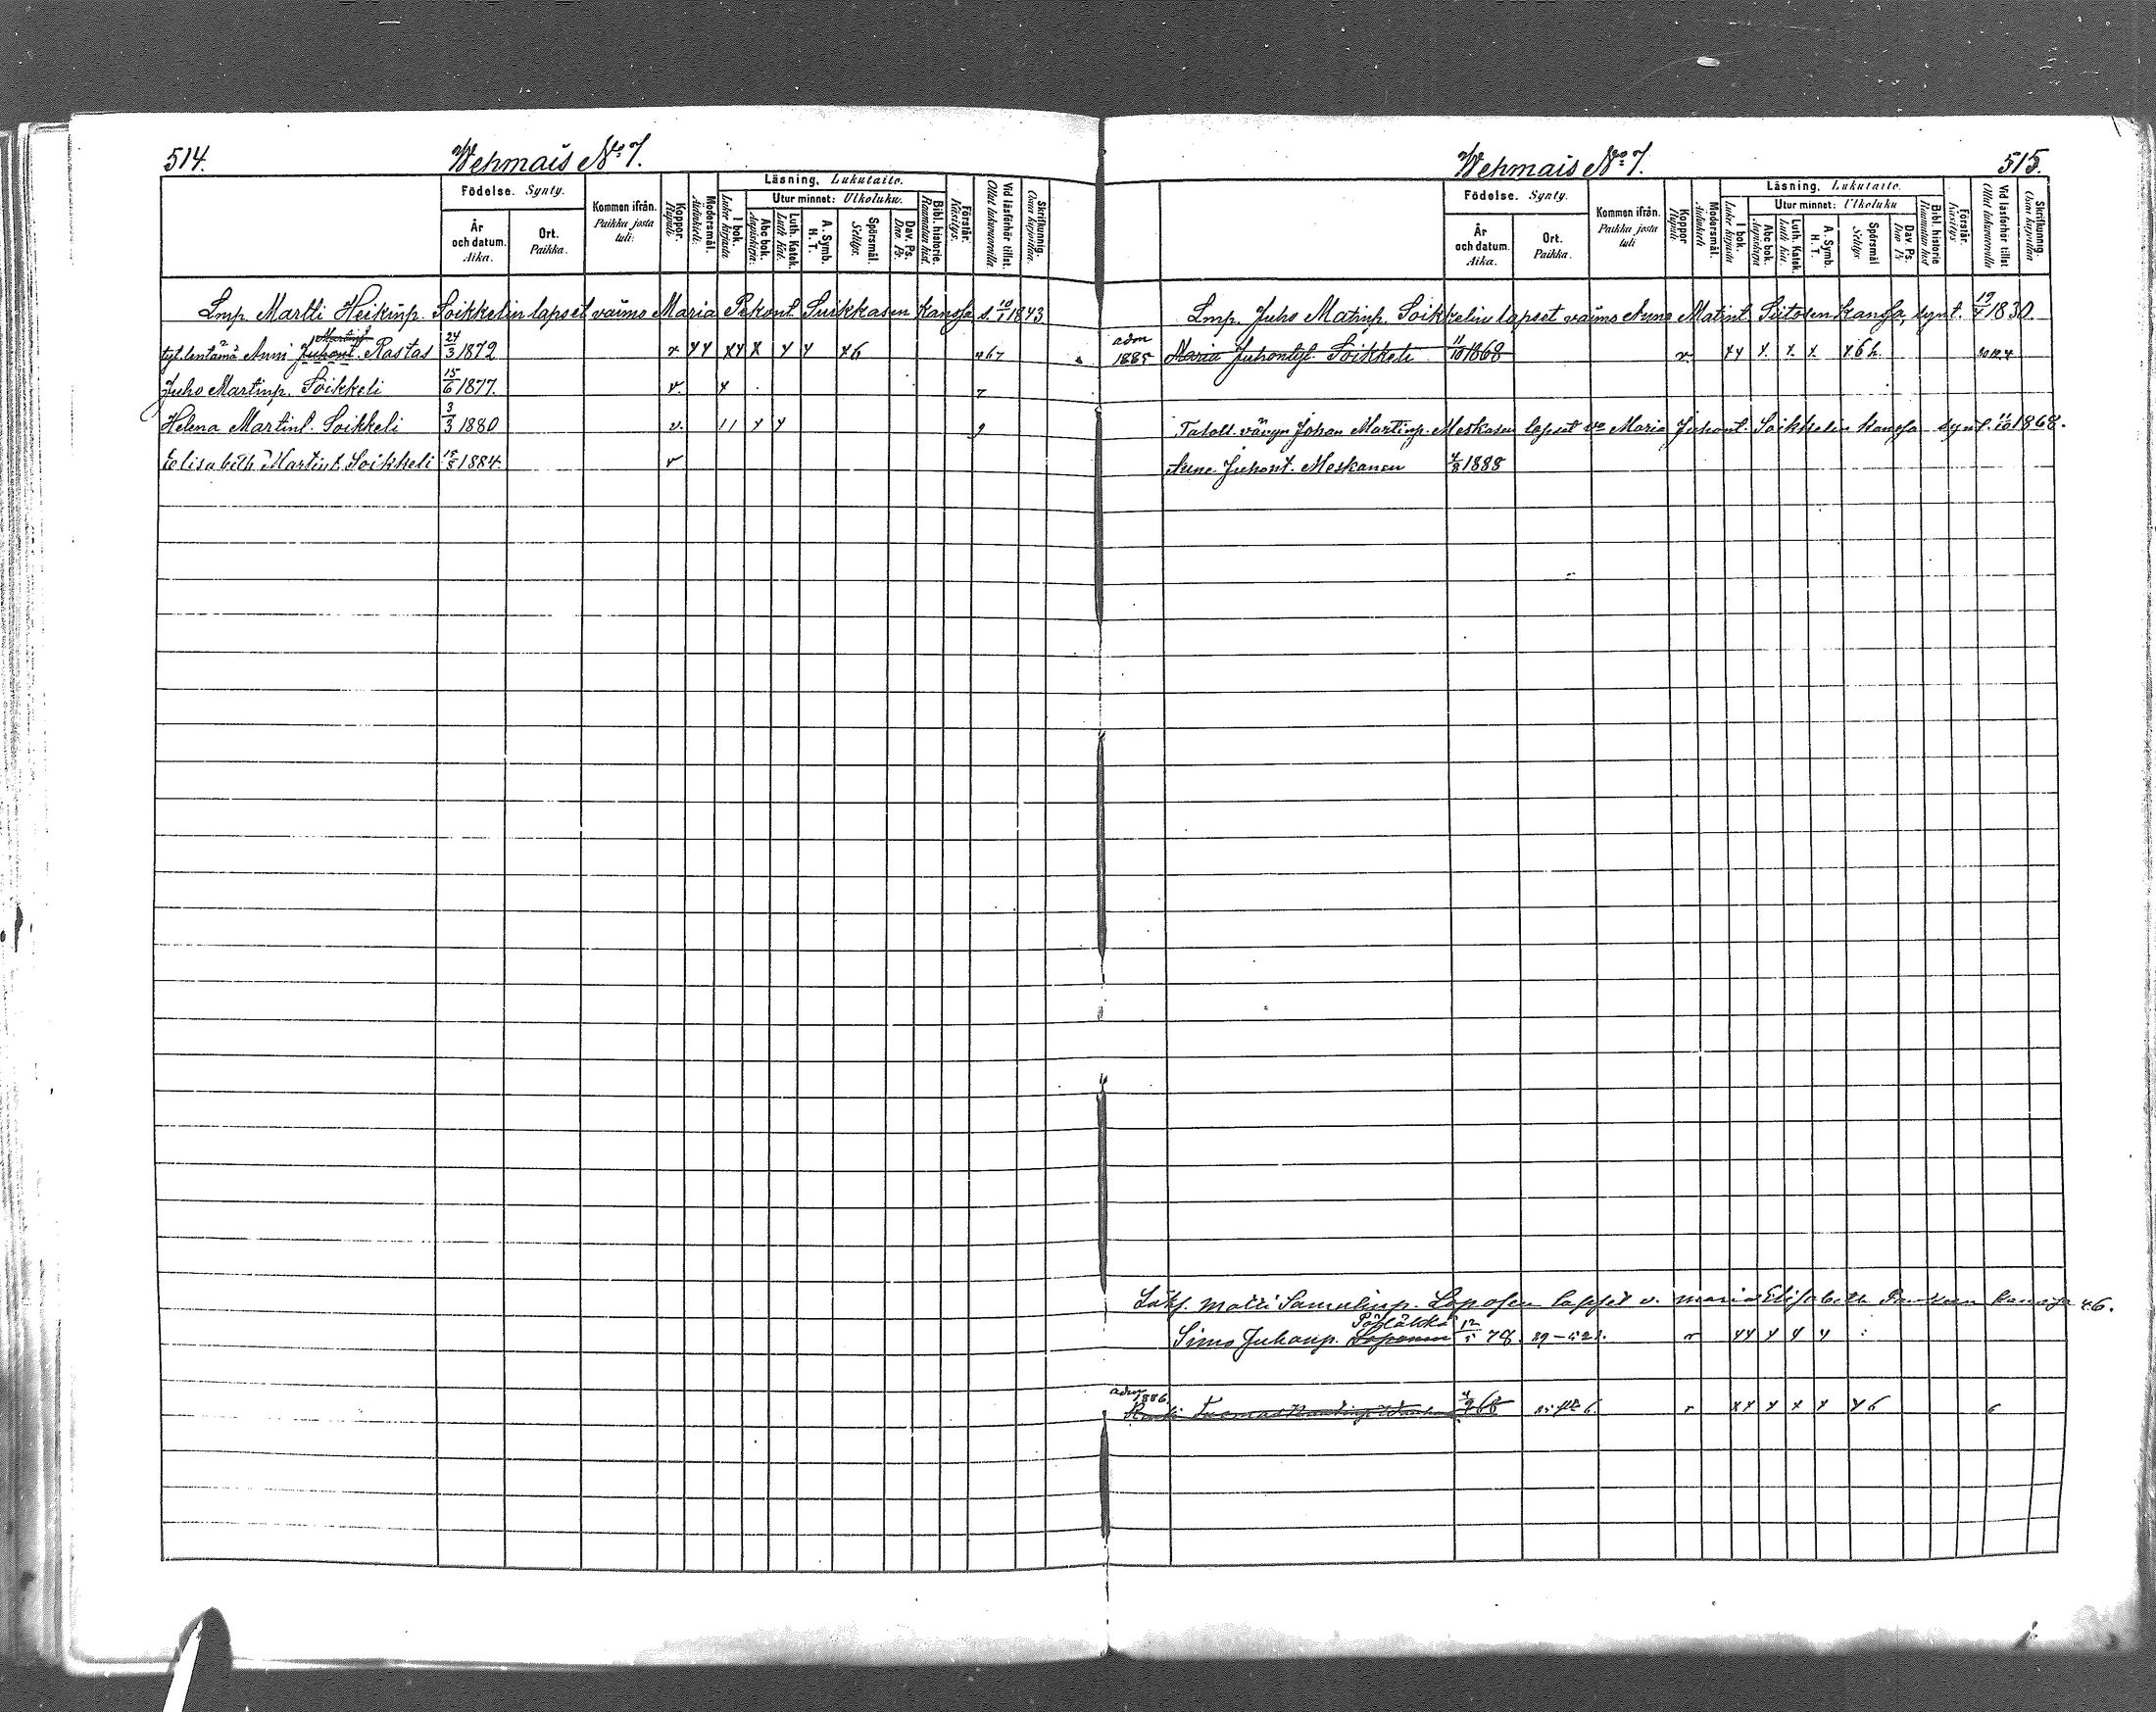 514.
Wehmais No 7.
Födelse. Synty.
Kommen ifrån. Paikka josta tuli.
Koppor. Rupuli.
Modersmål. Äidinkieli.
Läsning. Lukutaito.
I bok. Lukee kirjasta
Utur minnet: Ulkoluku.
Abc bok. Aapiskirja.
Luth. Katek. Luth. Kat.
A. Symb. H. T.
Spörsmål. Selitys.
Dav. Ps. Dav. Ps.
Bibl. historie. Raamatun hist.
Förstår. Käsitys.
Vid läsförhör tillst. Ollut lukuneuvoilla.
Skrifkunnig. Osaa kirjoittaa.
År och datum. Aika.
Ort. Paikka.
Lmp. Martti Heikinp. Soikkelin lapset vaimo Maria Pekont. Suikkasen kanssa s. 10/1 1843
Martint
Anni Juhont. Rastas 24/3 1872 v xx xx x x x x6 467
Juho Martinp. Soikkeli 15/6 1877. v. x 7
Helena Martint. Soikkeli 3/3 1880 v. 11 x x 9
Elisabeth Martint. Soikkeli 15/5 1884. v
Wehmais No 7.
515.
Födelse. Synty.
Kommen ifrån. Paikka josta tuli
Koppor Rupuli
Modersmål. Äidinkieli
Läsning. Lukutaito.
I bok. Lukee kirjasta
Utur minnet: Ulkoluku
Abc bok. Aapiskirja
Luth. Katek. Luth Kat.
A. Symb. H. T.
Spörsmål Selitys
Dav. Ps. Dav Ps
Bibl. historie Raamatun hist
Förstår. Käsitys.
Vid läsförhör tillst Ollut lukuneuvoilla
Skrifkunnig. Osaa kirjoittaa
År och datum. Aika.
Ort. Paikka.
Lmp. Juho Matinp. Soikkelin lapset vaimo Anna Matint. Siitosen kanssa, synt. 19/4 1830.
adm 1885 Maria Juhontyt Soikkeli 11/10 1868 v. xx x. x. x. x6h.
Taloll. vävyn Johan Martinp. Meskasen lapset vo Maria Juhont. Soikkelin kanssa synt. 11/10 1868.
Anne Juhont. Meskanen 4/8 1888
Matti lapset v. Maria Elisabeth kanssa 46.
Simo Juhanp. Loponen 12/5 78. v xx x x x
adm 1886.
Tuomas 4/9 68 v xx x x x x6 6